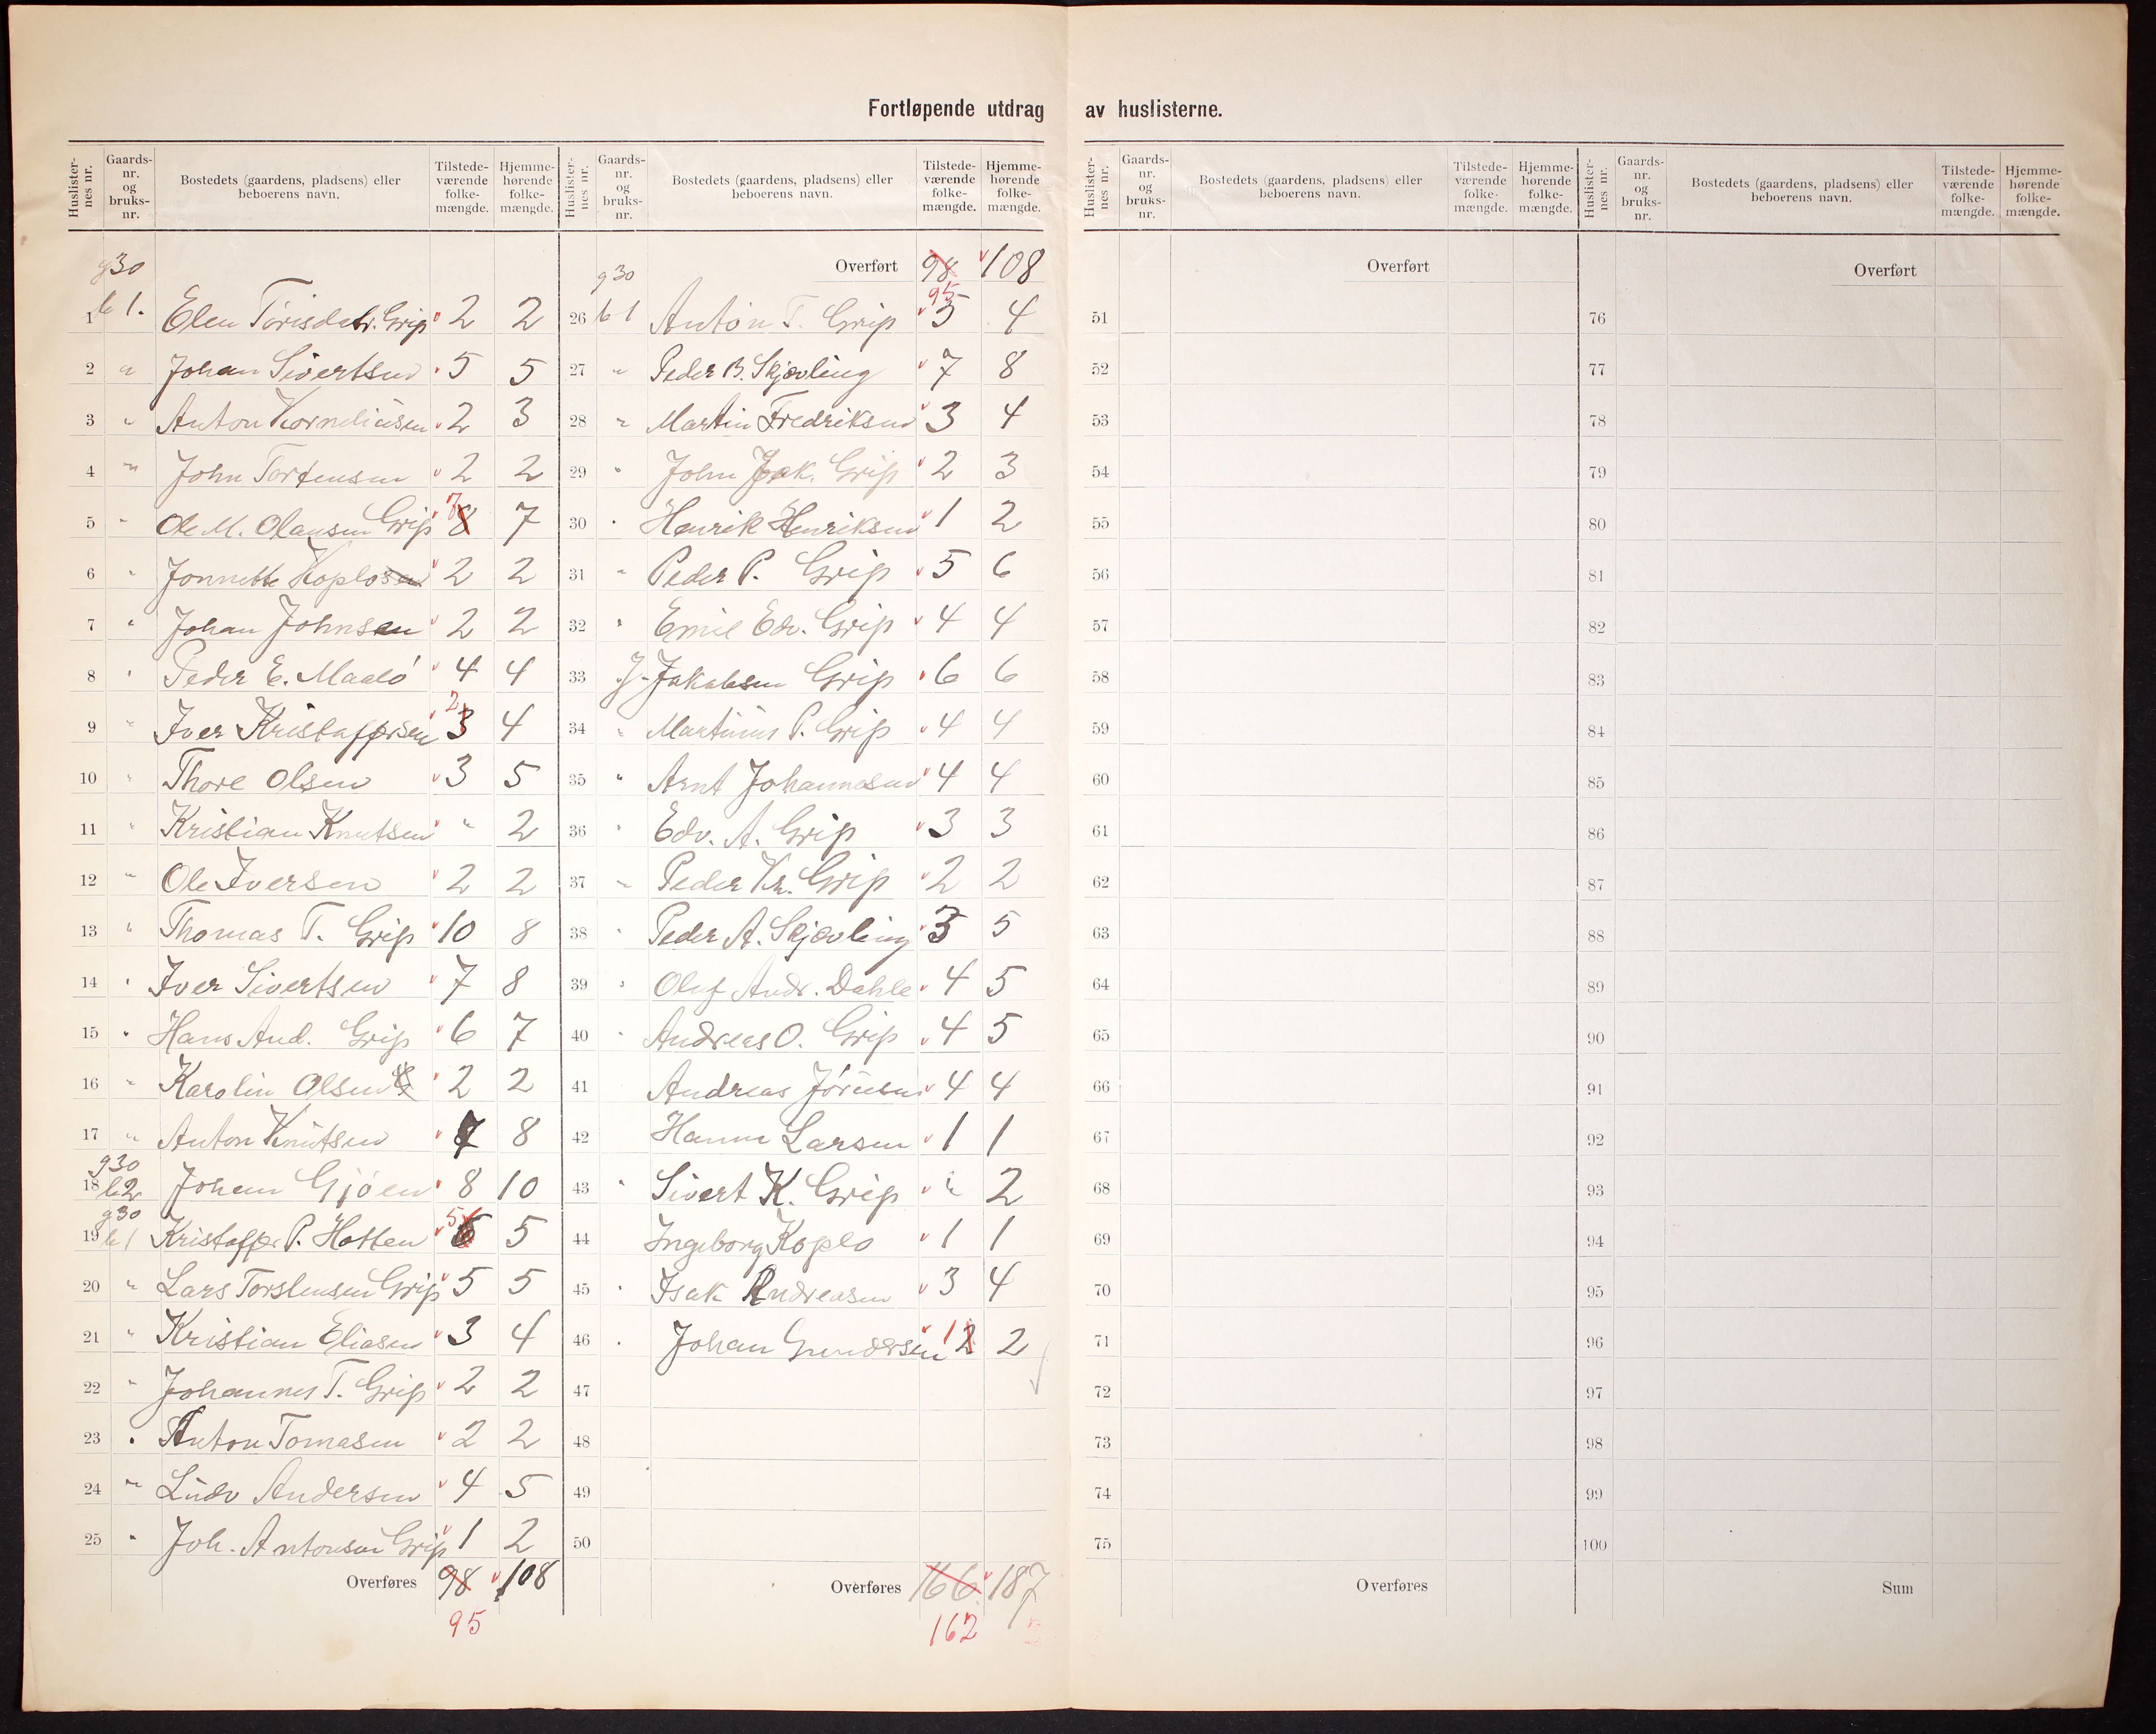 Fortløpende utdrag av huslisterne.
Huslisternes nr. Gaards-nr. og bruks-nr. Bostedets (gaardens, pladsens) eller beboerens navn. Tilstede-værende folke-mængde. Hjemme-hørende folke-mængde.
g30
1 b 1. Elen Torisdatr. Grip 2 2
2 " Johan Sivertsen 5 5
3 " Anton Korneliusen 2 3
4 " John Torstensen 2 2
5 " Ole M. Olausen Grip 8 7 7
6 " Jonnette Koplosen 2 2
7 " Johan Johnsen 2 2
8 " Peder E. Maalö 4 4
9 " Iver Kristoffersen 3 2 4
10 " Thore Olsen 3 5
11 " Kristian Knutsen " 2
12 " Ole Iversen 2 2
13 " Thomas T. Grip 10 8
14 " Iver Sivertsen 7 8
15 " Hans And. Grip 6 7
16 " Karolin Olsen 2 2
17 " Anton Knutsen 7 8
g30
18 b2 Johan Gjöen 8 10
g30
19 b 1 Kristoffer P. Hotten 6 5 5
20 " Lars Torstensen Grip 5 5
21 " Kristian Eliasen 3 4
22 " Johannes T. Grip 2 2
23 " Anton Tomasen 2 2
24 " Ludv Andersen 4 5
25 " Joh. Antonsen Grip 1 2
Overføres 98 108
95
Huslisternes nr. Gaards-nr. og bruks-nr. Bostedets (gaardens, pladsens) eller beboerens navn. Tilstede-værende folke-mængde. Hjemme-hørende folke-mængde.
g30 Overført 98 108
95
26 b 1 Anton T. Grip 5 4
27 " Peder B. Skjovling 7 8
28 " Martin Fredriksen 3 4
29 " John Jak. Grip 2 3
30 " Henrik Henriksen 1 2
31 " Peder P. Grip 5 6
32 " Emil Edv. Grip 4 4
33 J. Jakobsen Grip 6 6
34 " Martinus P. Grip 4 4
35 " Arnt Johannesen 4 4
36 " Edv. A. Grip 3 3
37 " Peder Kr. Grip 2 2
38 " Peder A. Skjovling 3 5
39 " Oluf Andr. Dahle 4 5
40 " Andreas O. Grip 4 5
41 Andreas Jörensen 4 4
42 Hanna Larsen 1 1
43 " Sivert K. Grip " 2
44 Ingeborg Koplo 1 1
45 " Isak Andreasen 3 4
46 " Johan Gundersen 1 2 2
47
48
49
50
Overføres 166 187
162
Huslisternes nr. Gaards-nr. og bruks-nr. Bostedets (gaardens, pladsens) eller beboerens navn. Tilstede-værende folke-mængde. Hjemme-hørende folke-mængde.
Overført
51
52
53
54
55
56
57
58
59
60
61
62
63
64
65
66
67
68
69
70
71
72
73
74
75
Overføres
Huslisternes nr. Gaards-nr. og bruks-nr. Bostedets (gaardens, pladsens) eller beboerens navn. Tilstede-værende folke-mængde. Hjemme-hørende folke-mængde.
Overført
76
77
78
79
80
81
82
83
84
85
86
87
88
89
90
91
92
93
94
95
96
97
98
99
100
Sum